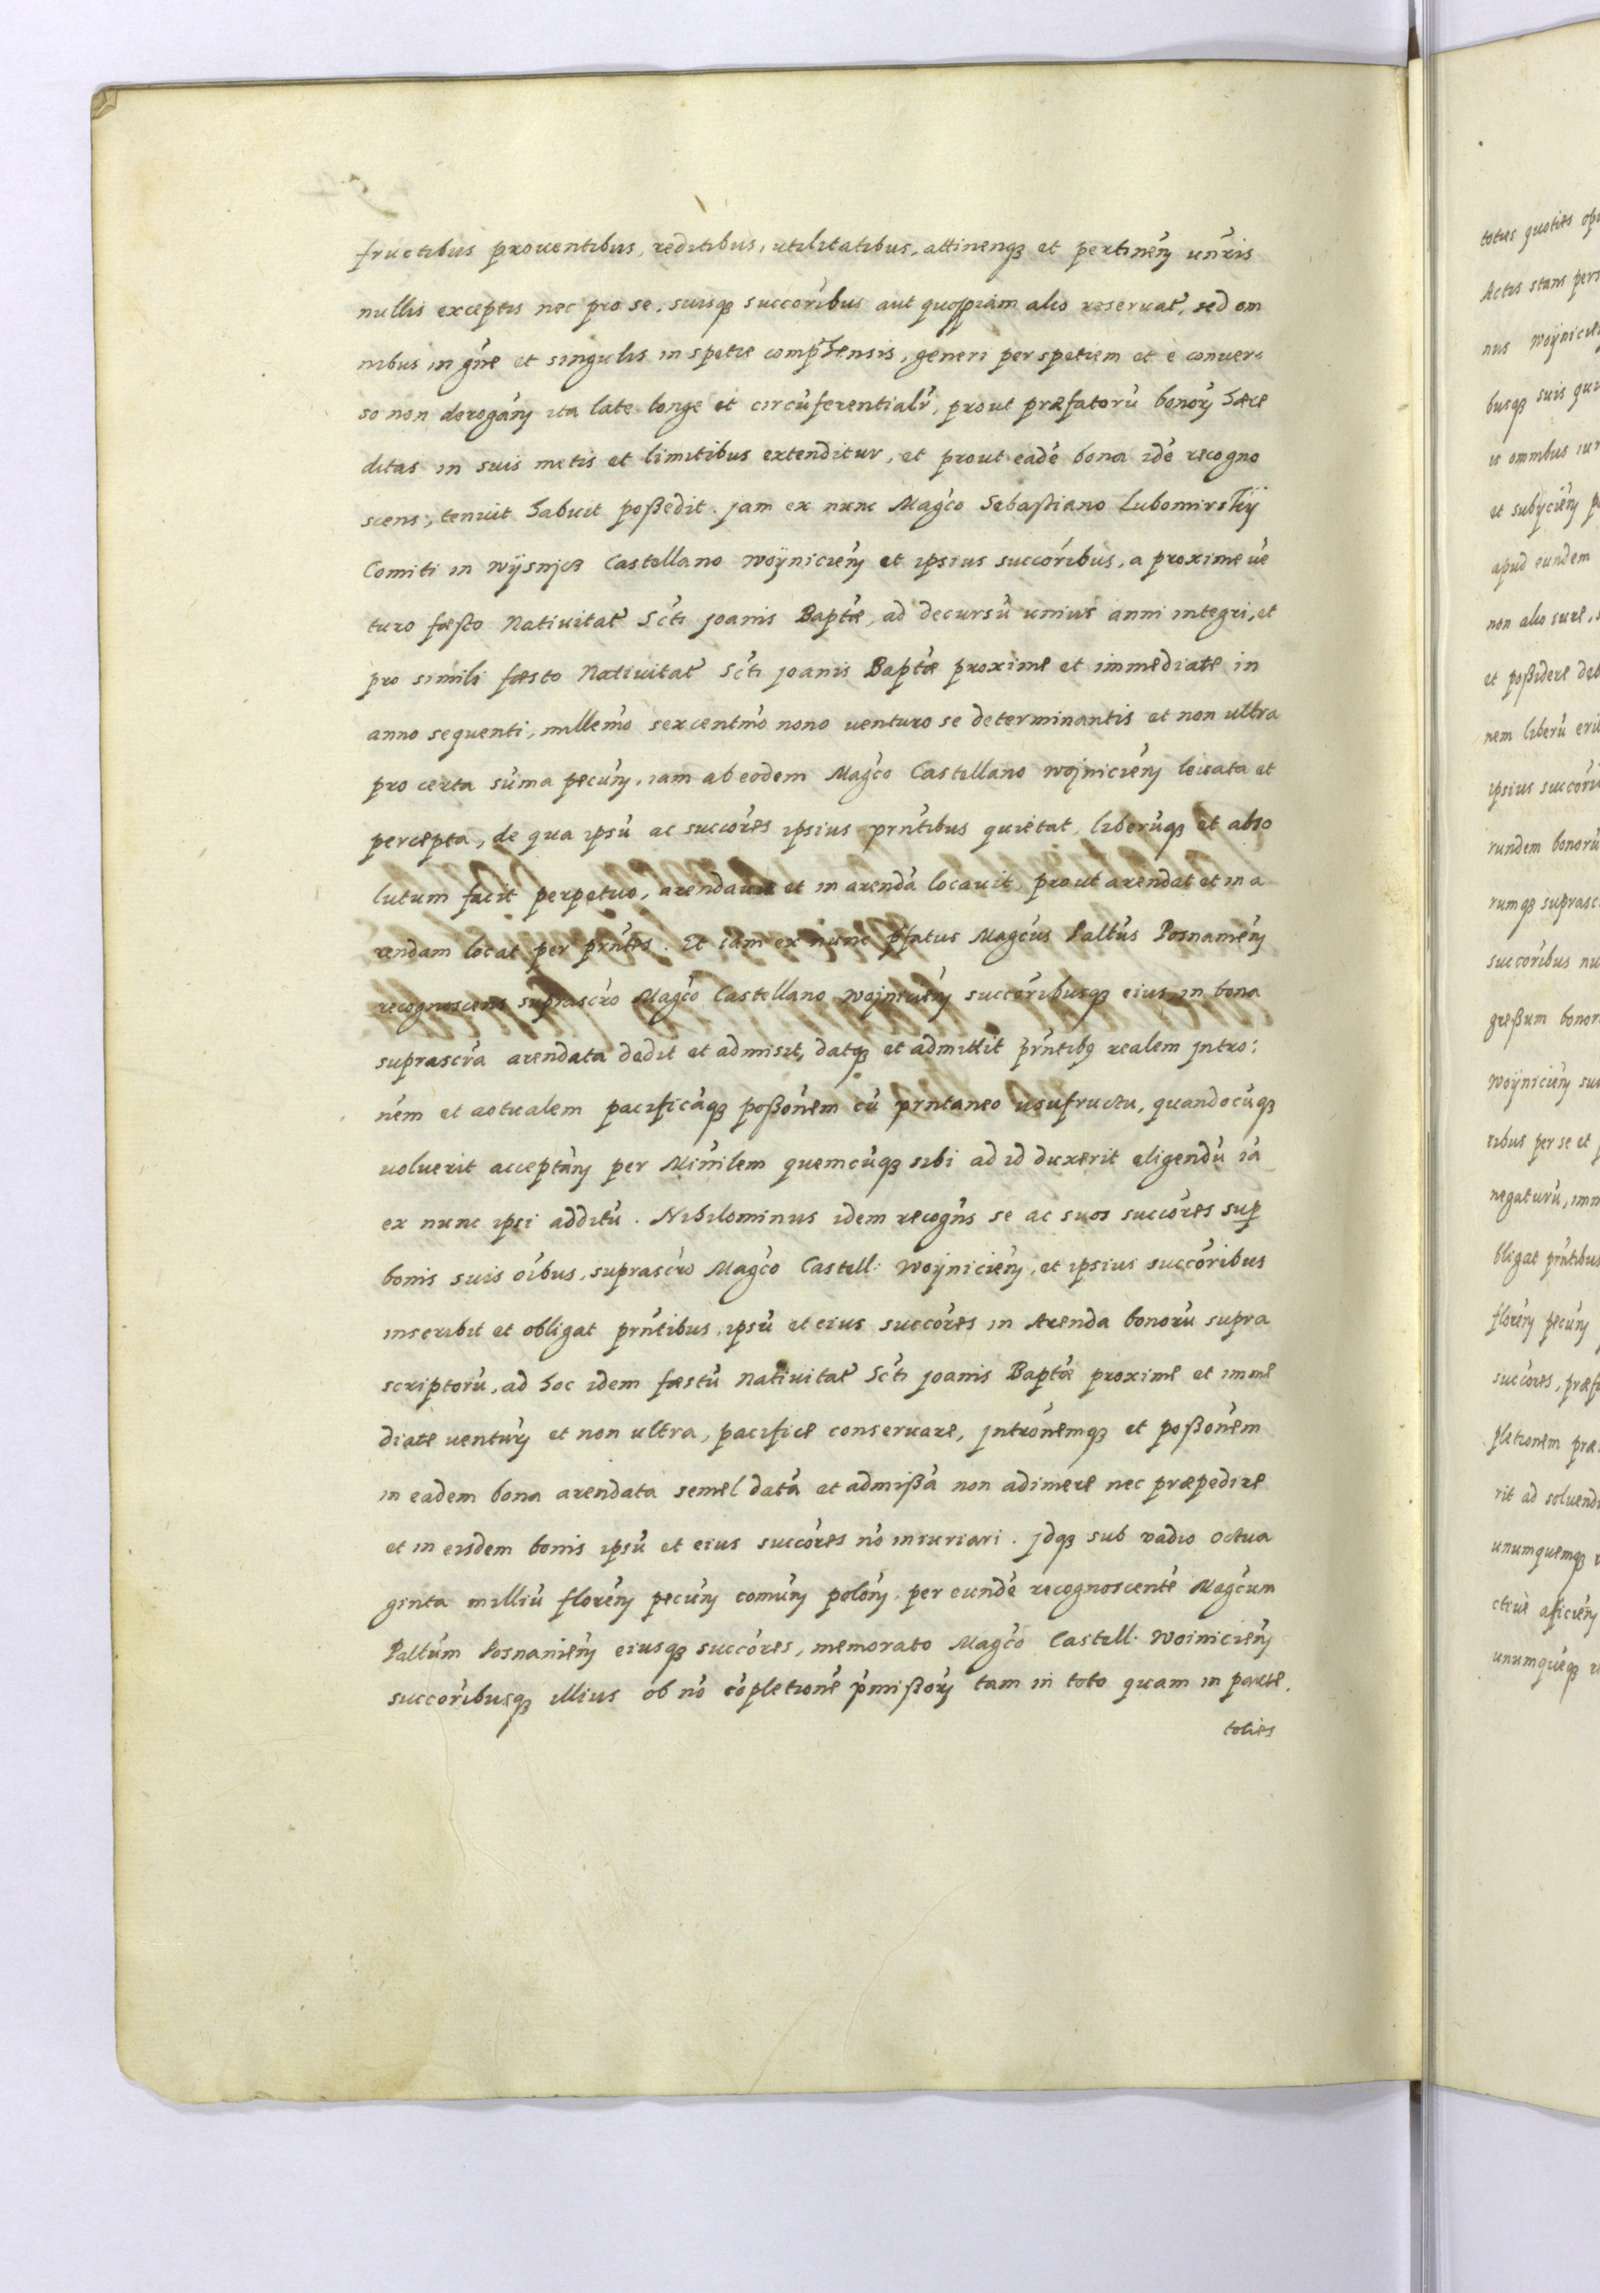 fructibus prouentibus, reditibus, utilitatibus, attinenq3 et pertineń unr̃is
nullis exceptis nec pro se, suisq3 succor̃ibus aut quopiam alio reseruat̃, sed om
nibus in gñe et singulis in spetie comp̃hensis, generi per spetiem et è conuer:
so non derogań ita late longe et circũferentialr̃, prout præfatorũ bonor̃ hære
ditas in suis metis et limitibus extenditur, et prout eadẽ bona idẽ recogno
scens, tenuit habuit poßedit. jam ex nunc Mag̃co Sebastiano Lubomirskÿ
Comiti in Wÿsnjcz Castellano Woÿnicień et ipsius succor̃ibus, a proxime vẽ
turo fæsto Natiuitat̃ Sc̃ti joanis Bapt̃æ, ad decursũ unius anni integri, et
pro simili fæsto Natiuitat̃ Sc̃ti joanis Bapt̃æ proxime et immediate in
anno sequenti, millem̃o sexcentm̃o nono uenturo se determinantis et non ultra
pro certa sũma pecuń, iam ab eodem Mag̃co Castellano Wojnicień leuata et
percepta, de qua ipsũ ac succor̃es ipsius prñtibus quietat, liberũq3 et abso
lutum facit perpetuo, arendauit et in arendã locauit, prout arendat et in a
rendam locat per prñtes. Et iam ex nunc p̃fatus Mag̃cus Palt̃us Posnanień
recognoscens suprascr̃o Mag̃co Castellano Wojnicień succor̃ibusq3 eius, in bona
suprascr̃a arendata dedit et admisit, datq3 et admittit prñtibq realem jntro:
nẽm et actualem pacificãq3 poßoñem cũ prntaneo usufructu, quandocũq3
uoluerit acceptań per Miñilem quemcũq3 sibi ad id duxerit eligendũ iã
ex nunc ipsi additũ. Nihilominus idem recogñs se ac suos succor̃es sup̃
bonis suis õibus, suprascr̃o Mag̃co Castell: Woÿnicień, et ipsius succor̃ibus
inscribit et obligat prñtibus, ipsũ et eius succor̃es in Arenda bonorũ supra
scriptorũ, ad hoc idem fæstũ Natiuitat̃ Sc̃ti joanis Bapt̃æ proxime et imme
diate uentur̃ et non ultra, pacifice conseruare, jntroñemq3 et poßoñem
in eadem bona arendata semel datã et admißã non adimere nec præpedire
et in eisdem bonis ipsũ et eius succor̃es nõ iniuriari. jdq3 sub vadio octua
ginta milliũ floreń pecuń comuń poloń, per eundẽ recognoscentẽ Mag̃cum
Palt̃um Posnanień eiusq3 succor̃es, memorato Mag̃co Castell: Woinicień
succor̃ibusq3 illius ob nõ cõpletionẽ p̃mißor̃ tam in toto quam in parte,
toties
toties quoties
Actis stans
nus Woÿnicień
busq3 suis
is omnibus
et subÿcień
apud eundem
non alio iure,
et poßidere
nem liberũ
ipsius
rundem bonorũ
rumq3
succor̃ibus
greßum
Woÿnicień
ribus per se et
negaturũ,
bligat prñtibus
floreń pecuń
succor̃es,
pletionem
rit ad
unumquemq3
unumquẽq3